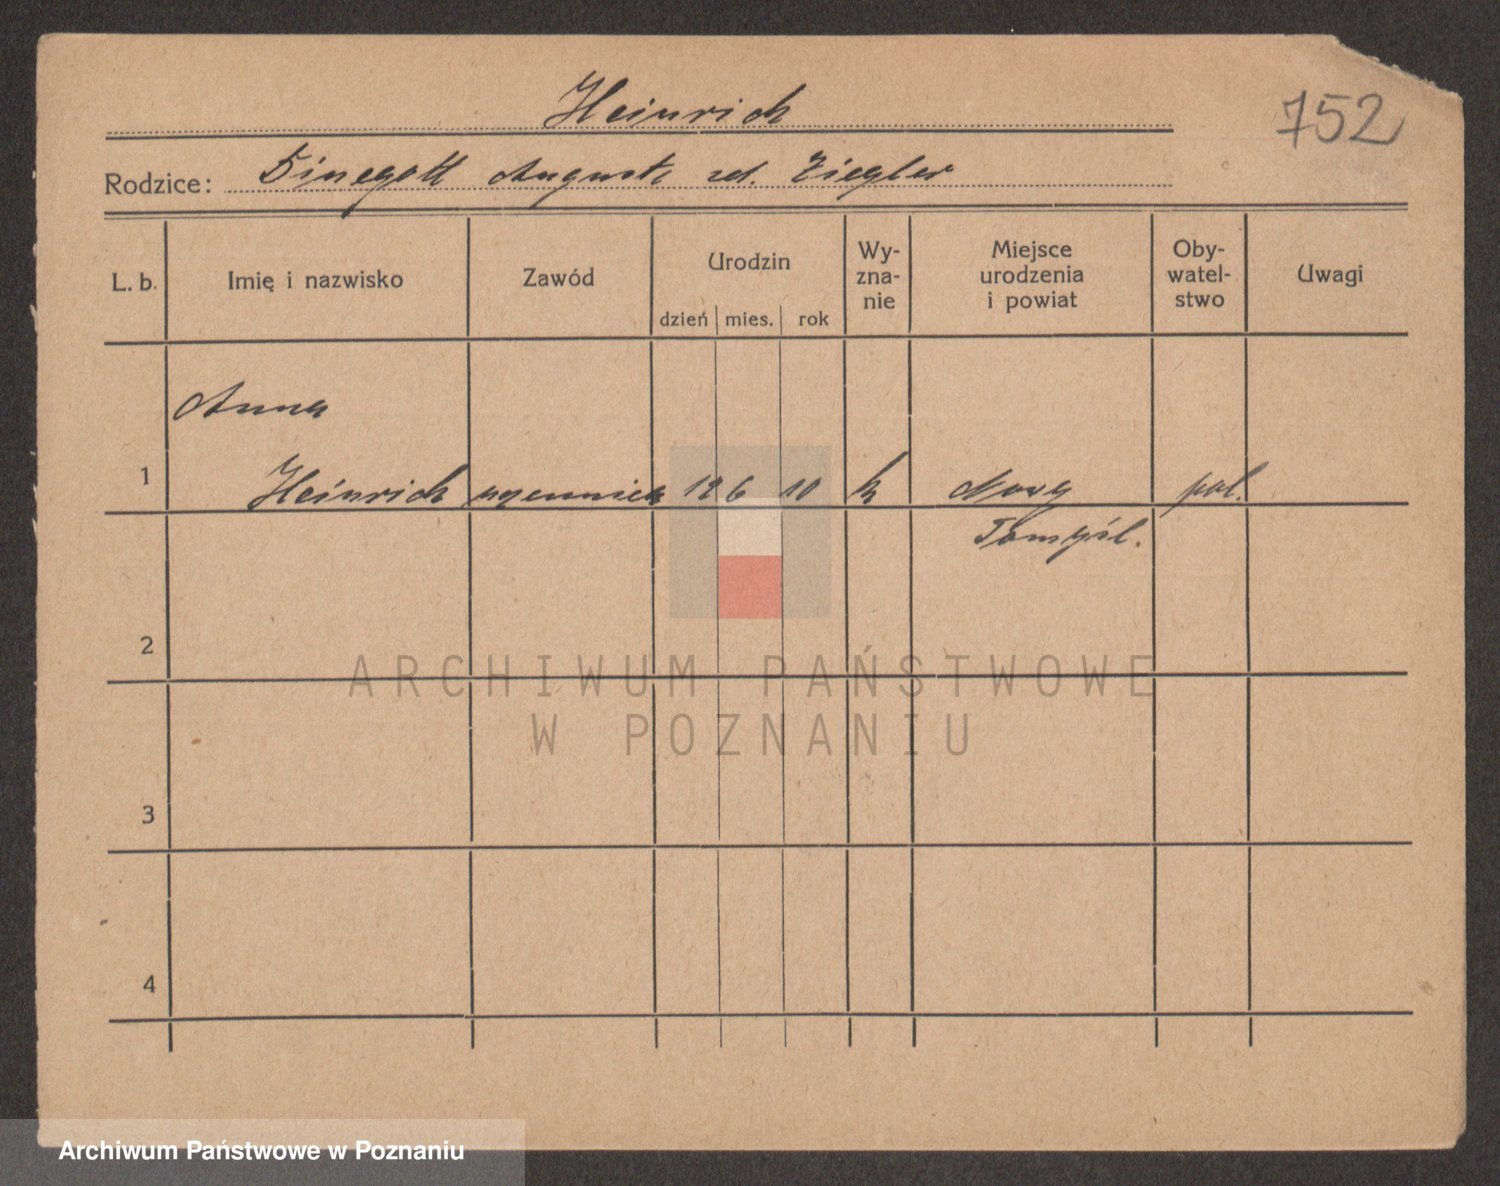 Heinrich
752
Rodzice: August zd. Ziegler
L. b.
Imię i nazwisko
Zawód
Urodzin
dzień mies. rok
Wy-
zna-
nie
Miejsce
urodzenia
i powiat
Oby-
watel-
stwo
Uwagi
Anna
1 Heinrich 6 10 k Nowy pol.
Tomyśl.
2
3
4
ARCHIWUM PAŃSTWOWE
W POZNANIU
Archiwum Państwowe w Poznaniu